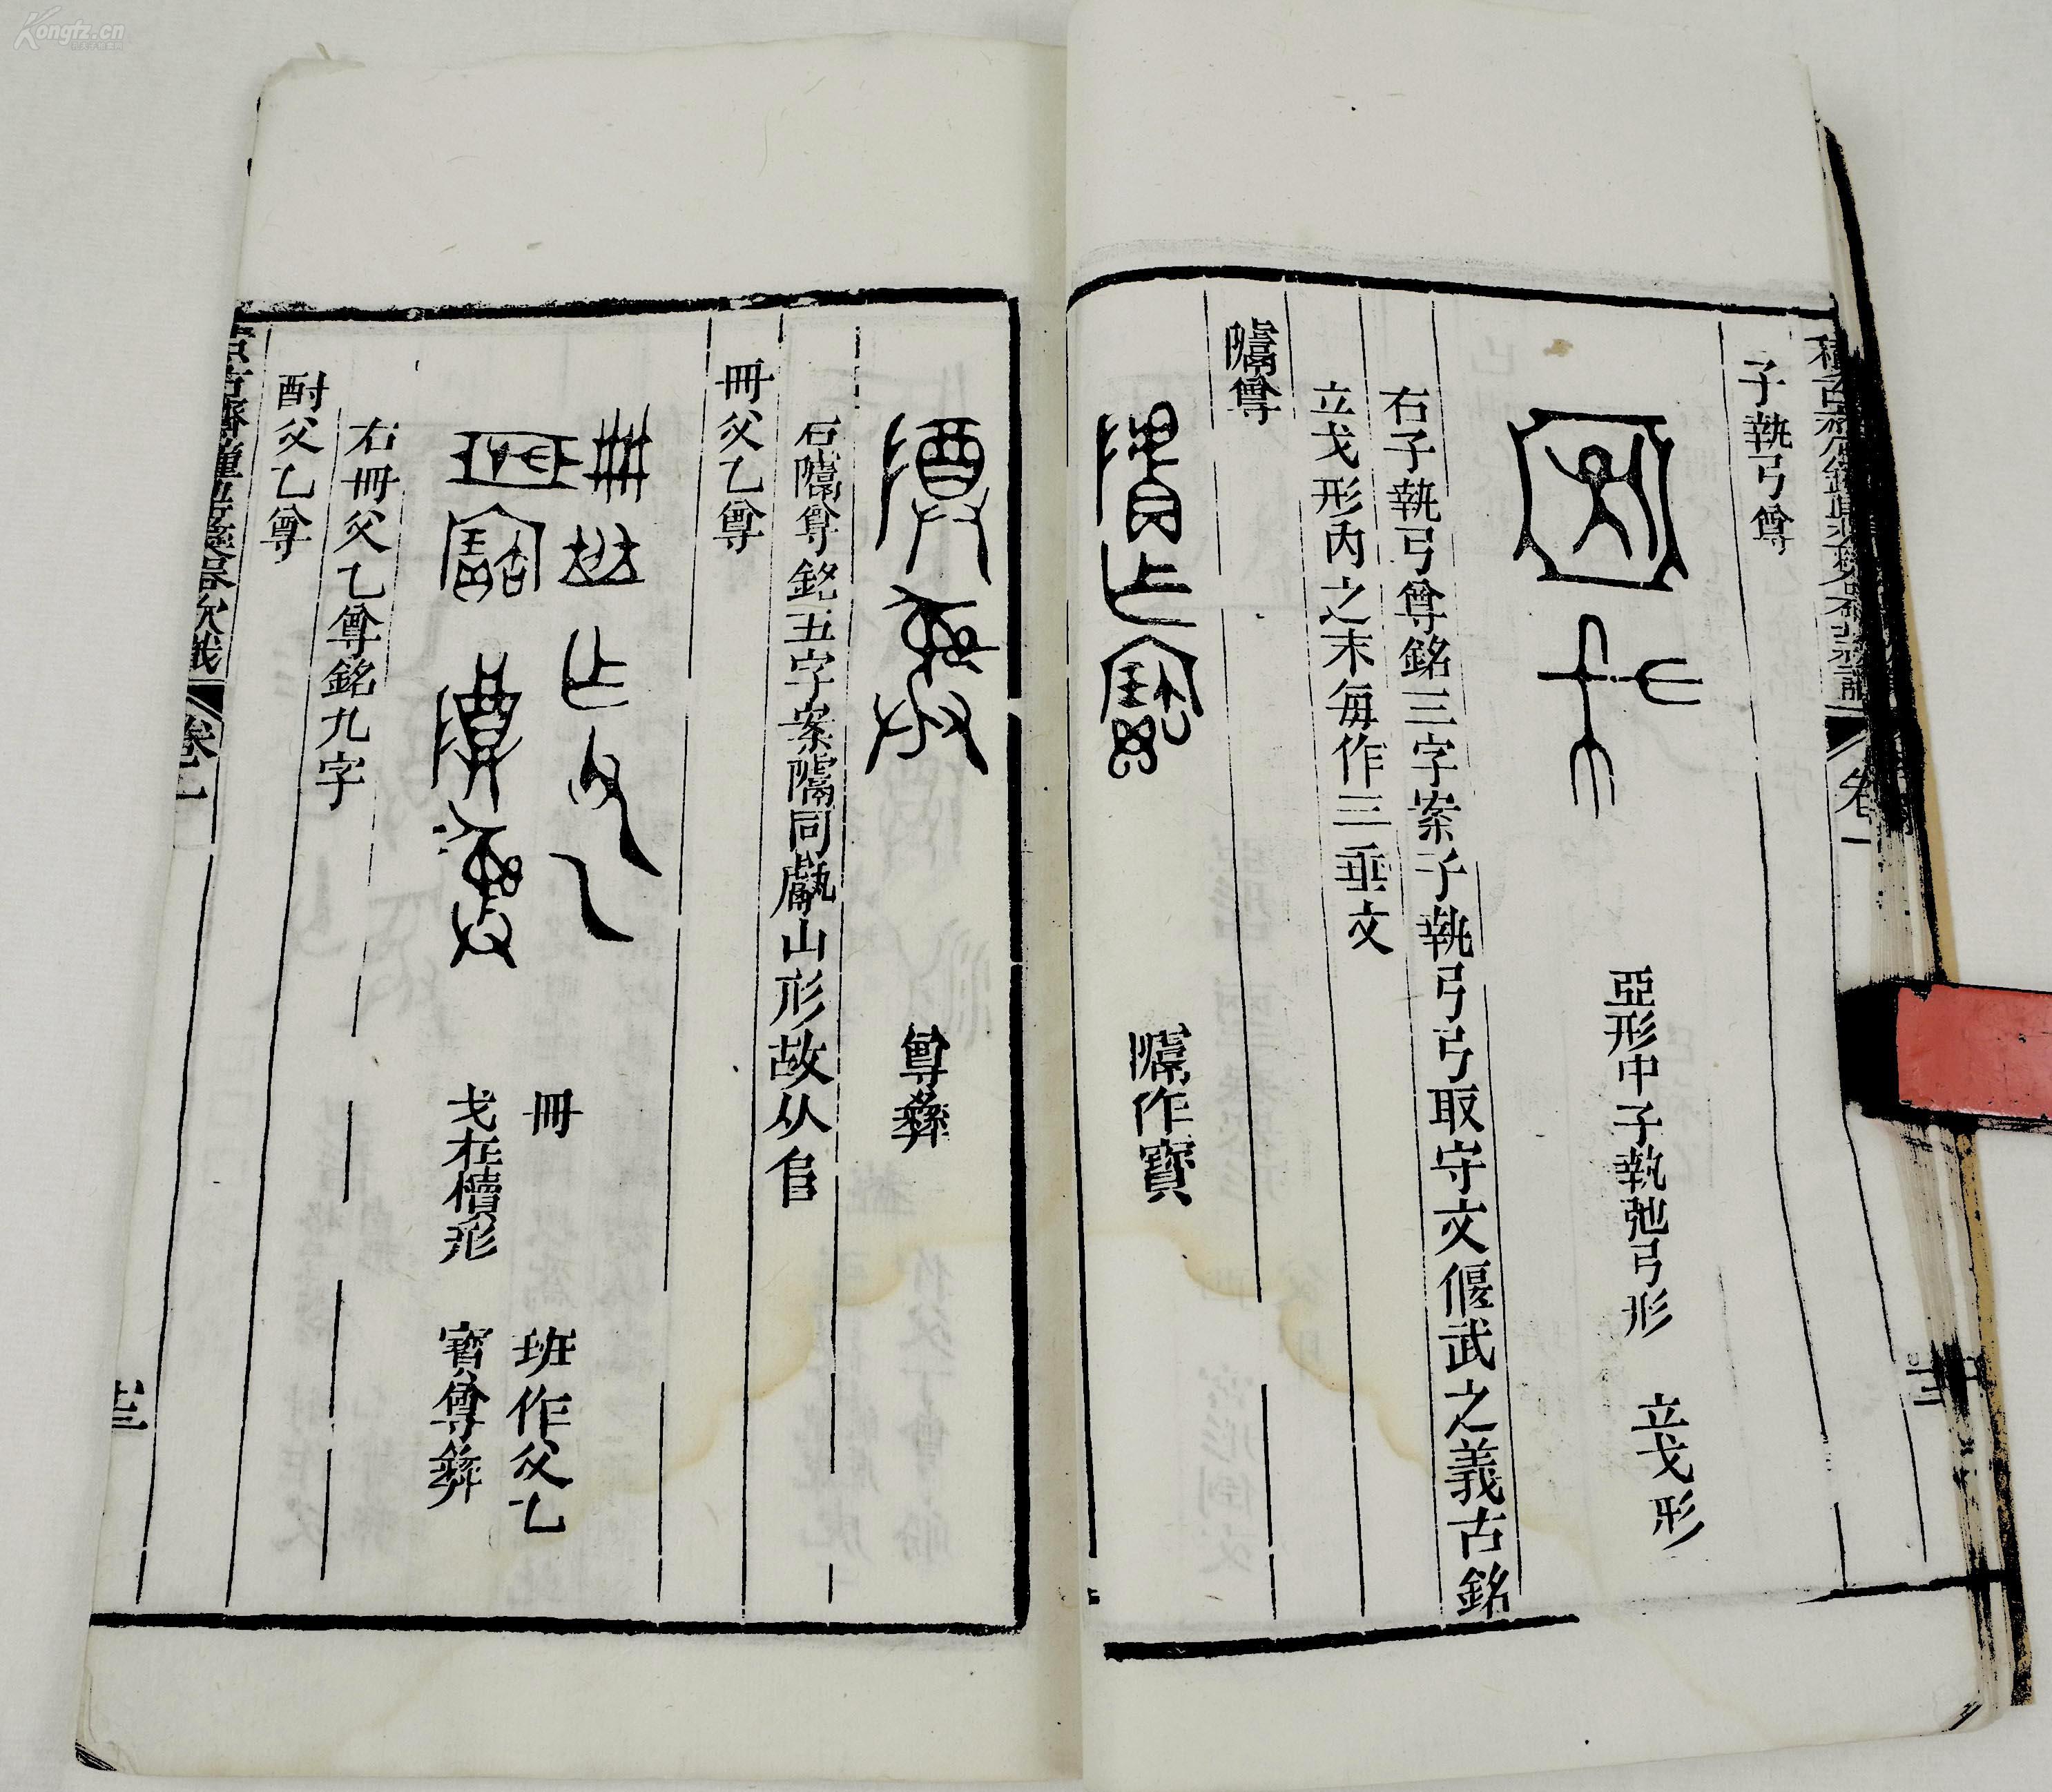 Kongfz.cn
積古齋鐘鼎彝器款識 卷一
子執弓尊
亞形中子執弛弓形 立戈形
右子執弓尊銘三字案子執弓弓取守文偃武之義古銘
立戈形內之末每作三垂文
隯尊
作寶
尊彝
尊銘五字案 同 山形故从𨸏
冊父乙尊
冊 班作父乙
戈在櫝形 寶尊彝
右冊父乙尊銘九字
酎父乙尊
積古齋鐘鼎彝器款識 卷一